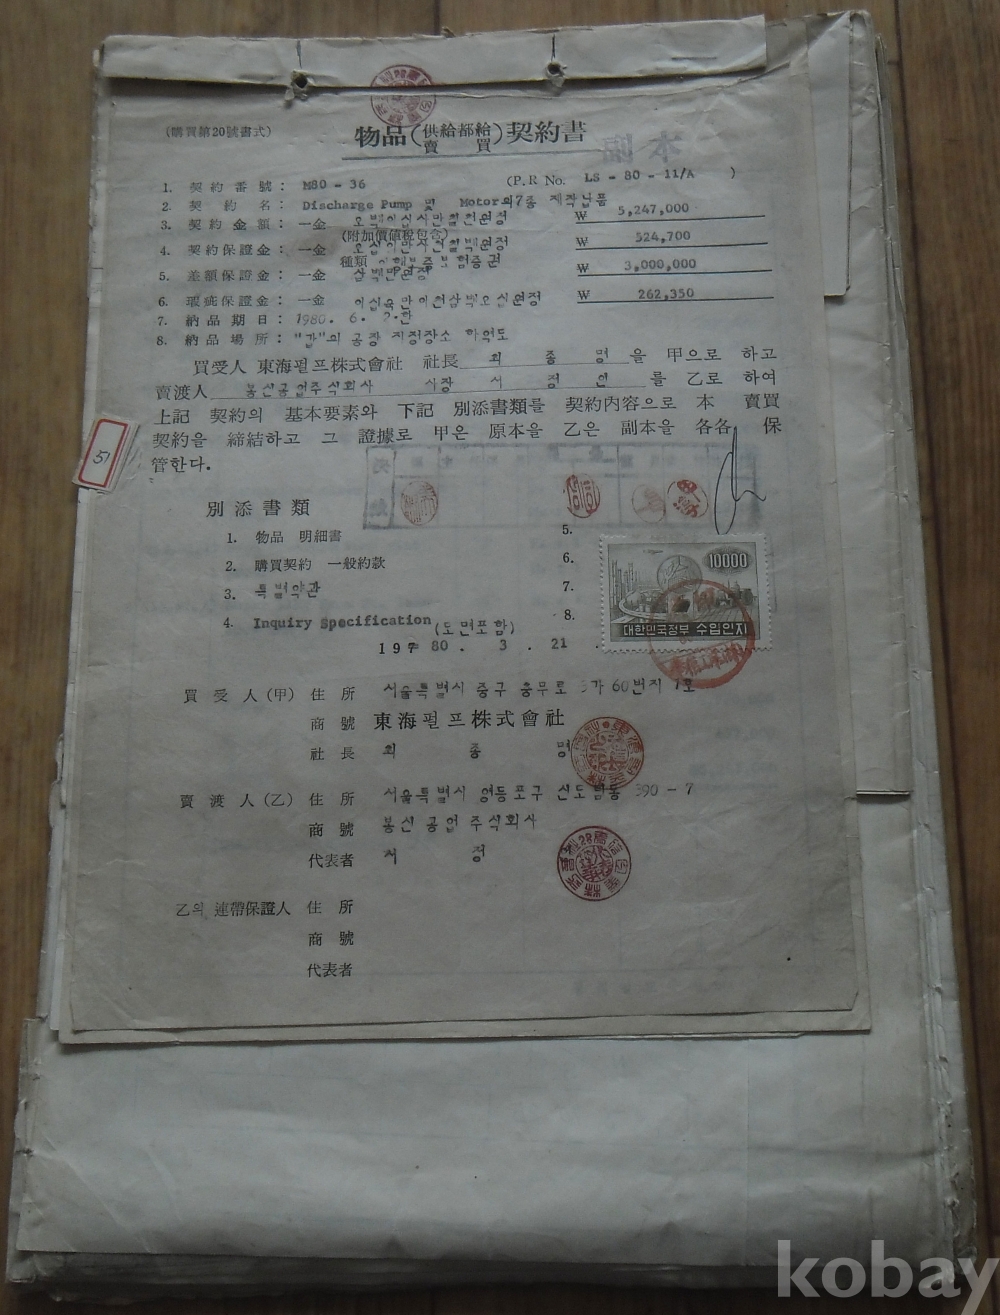 (購買第20號書式)
物品(供給都給賣買)契約書
1. 契約番號: M80-36 (P.R No. LS-80-11/A)
2. 契約名: Discharge Pump 및 Motor외7종 제작납품
3. 契約金額: 一金 오백이십사만칠천원정 ₩ 5,247,000
(附加價値稅包含)
4. 契約保證金: 一金 오십이만사천칠백원정 ₩ 524,700
種類 이행보증보험증권
5. 差額保證金: 一金 삼백만원정 ₩ 3,000,000
6. 瑕疵保證金: 一金 이십육만이천삼백오십원정 ₩ 262,350
7. 納品期日: 1980. 6. 7.한
8. 納品場所: "갑"의 공장 지정장소 하역도
買受人 東海펄프株式會社 社長 최종명 을 甲으로 하고
賣渡人 봉신공업주식회사 사장 서정인 를 乙로 하여
上記 契約의 基本要素와 下記 別添書類를 契約内容으로 本 賣買
契約을 締結하고 그 證據로 甲은 原本을 乙은 副本을 各各 保
管한다.
51
別添書類
1. 物品 明細書
2. 購買契約 一般約款
3. 특별약관
4. Inquiry Specification (도면포함)
5.
6.
7.
8.
10000
대한민국정부 수입인지
197 80. 3. 21.
買受人(甲) 住所 서울특별시 중구 충무로 가 60번지 1호
商號 東海펄프株式會社
社長 최종명
賣渡人(乙) 住所 서울특별시 영등포구 신도림동 390-7
商號 봉신공업주식회사
代表者 서정
乙의 連帶保證人 住所
商號
代表者
kobay